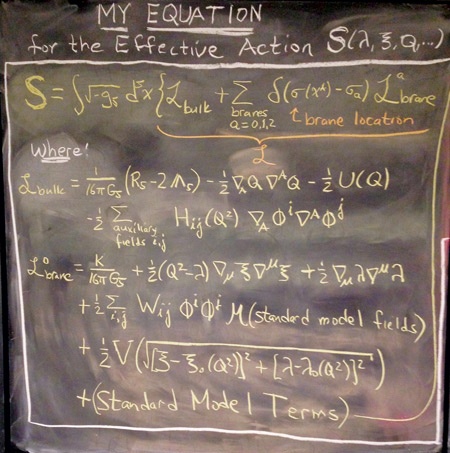 MY EQUATION
for the Effective Action S(λ, ξ, Q, ...)
S = ∫√-g₅ d⁵x { ℒ_bulk + Σ_{branes a=0,1,2} δ(σ(x^A) - σ_a) ℒ^a_brane
↑ brane location
ℒ
Where:
ℒ_bulk = 1/(16πG₅) (R₅ - 2Λ₅) - ½ ∇_A Q ∇^A Q - ½ U(Q)
- ½ Σ_{auxiliary fields i,j} H_ij(Q²) ∇_A Φ^i ∇^A Φ^j
ℒ^a_brane = K/(16πG₅) + ½(Q² - λ) ∇_μ ξ ∇^μ ξ + ½ ∇_μ λ ∇^μ λ
+ ½ Σ_{i,j} W_ij Φ^i Φ^j M(standard model fields)
+ ½ V(√([ξ - ξ₀(Q²)]² + [λ - λ₀(Q²)]²))
+ (Standard Model Terms)